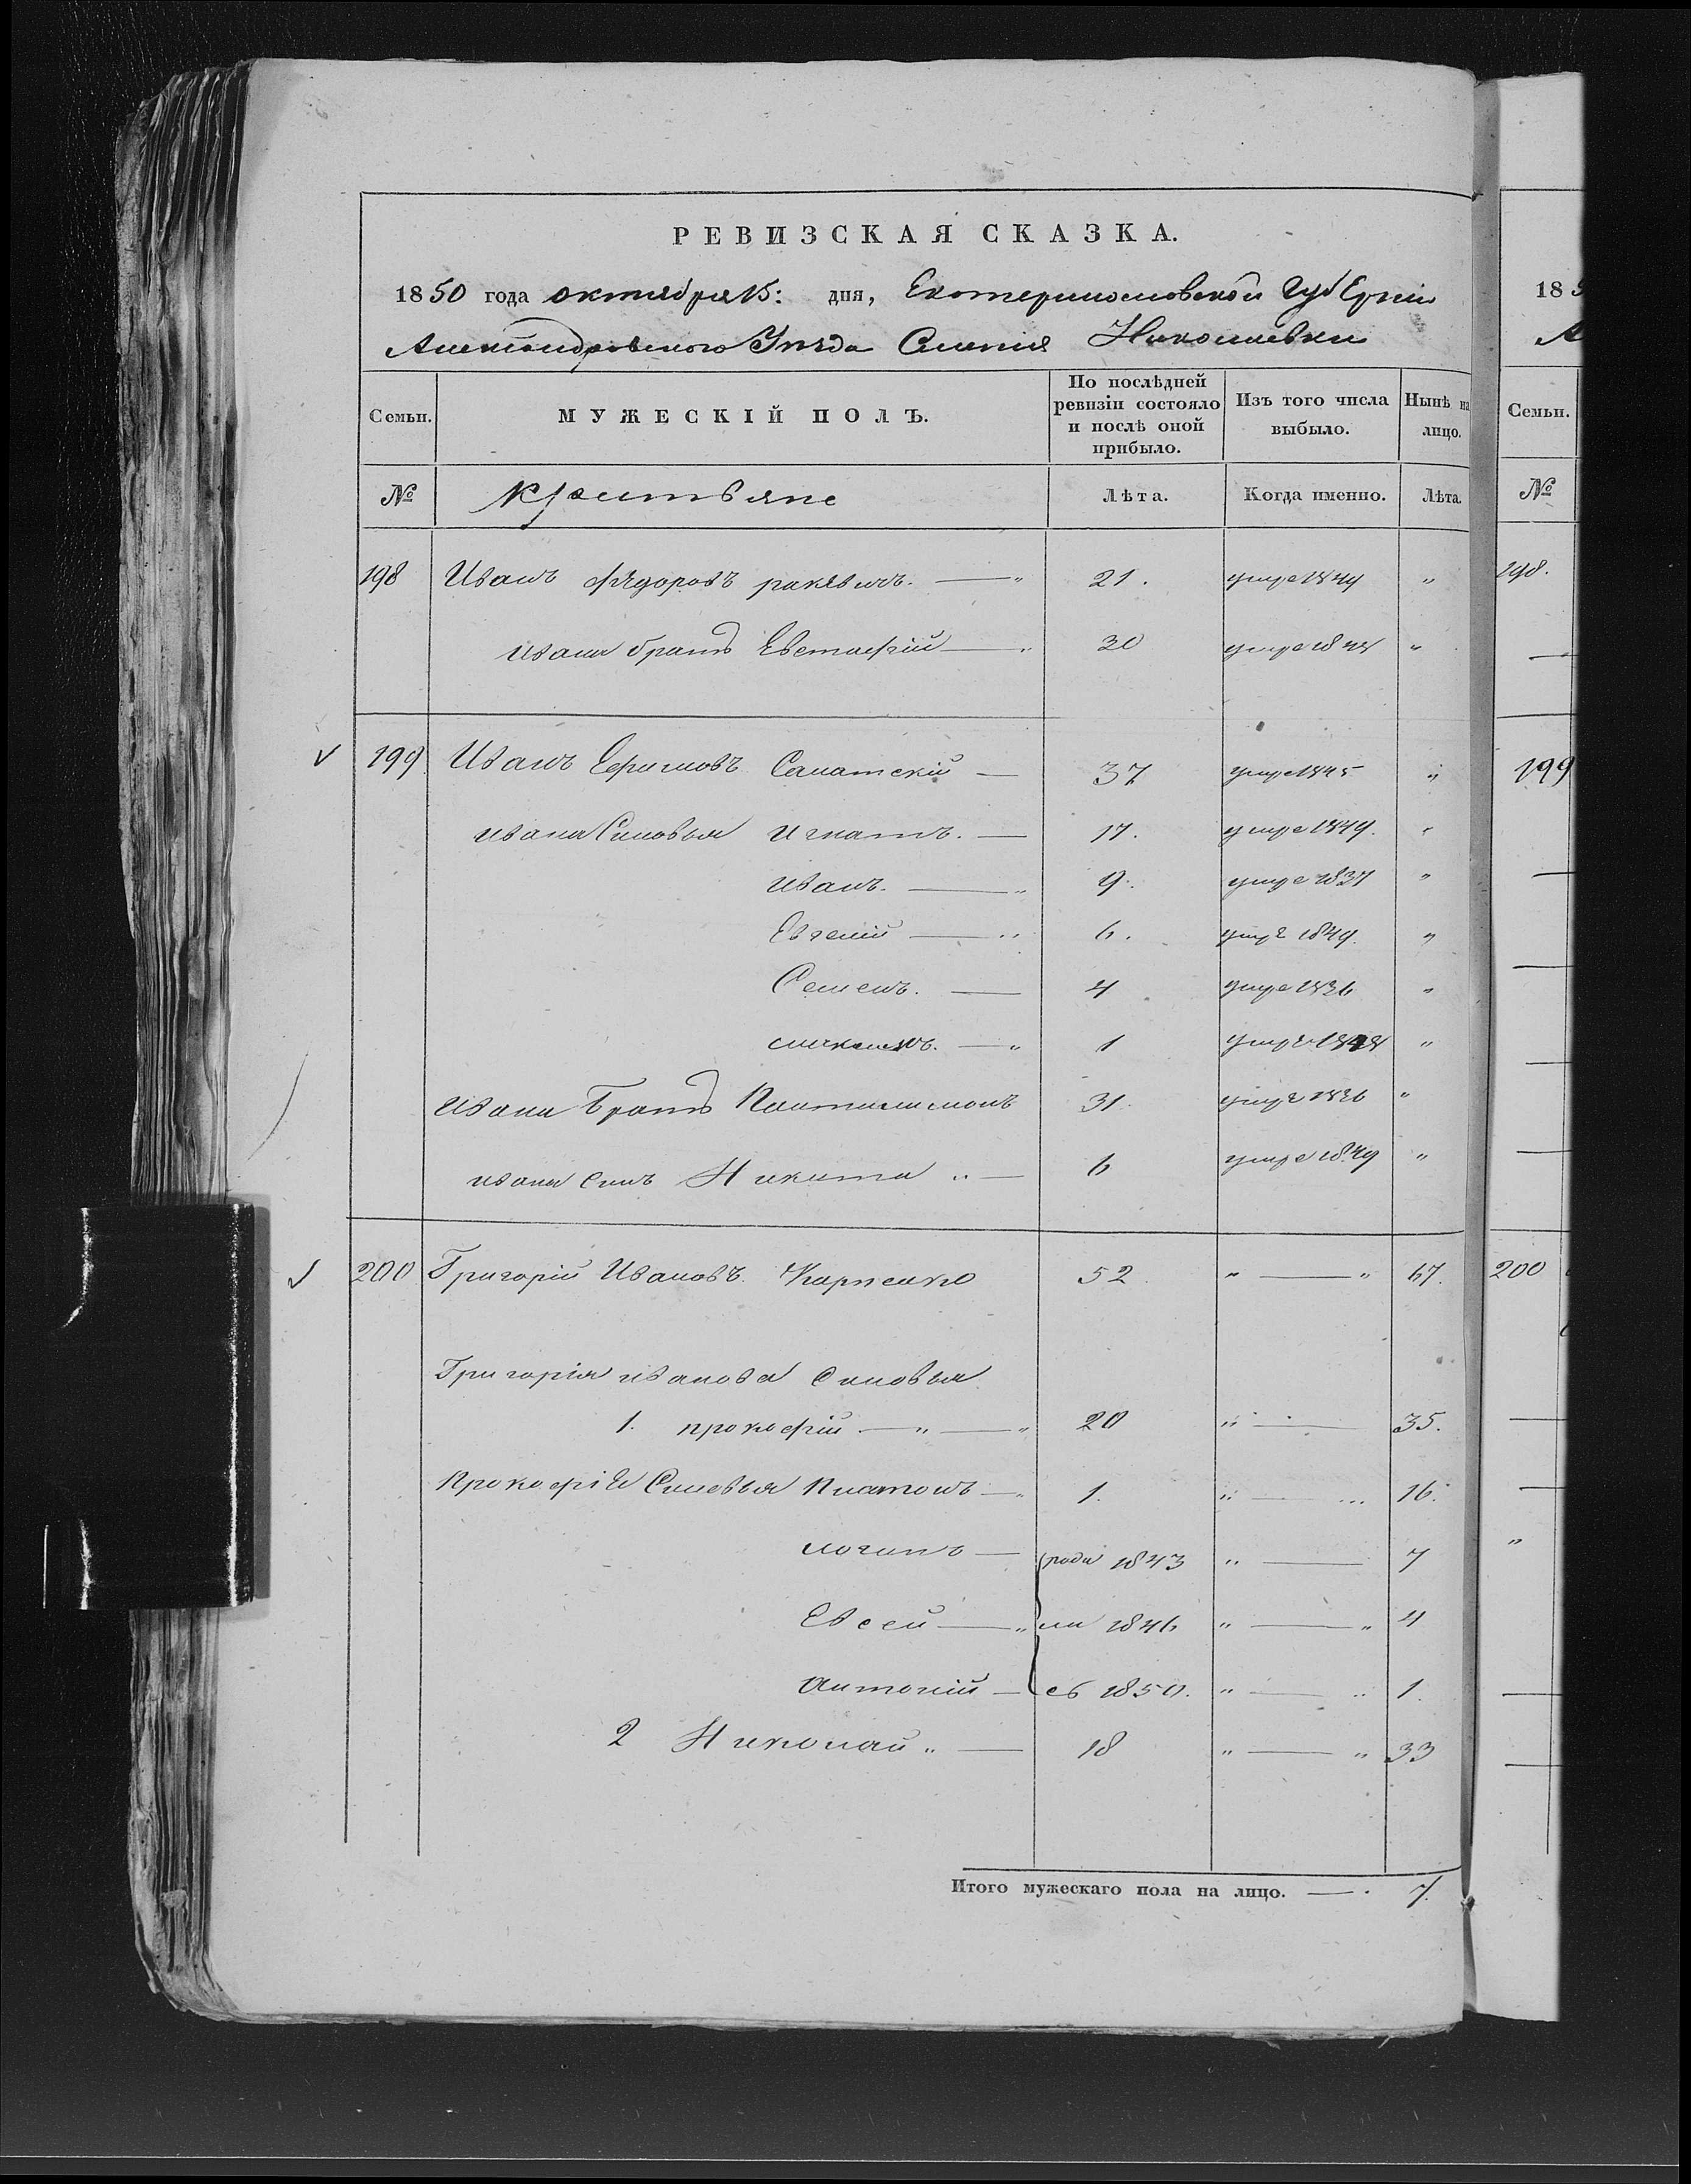 РЕВИЗСКАЯ СКАЗКА.
1850 года октября 15: дня, Екатеринославской Губерніи
Александровскаго Уѣзда Селенія Николаевки
Семьи. МУЖЕСКІЙ ПОЛЪ. По послѣдней ревизіи состояло и послѣ оной прибыло. Изъ того числа выбыло. Нынѣ на лицо.
№ Крестьяне Лѣта. Когда именно. Лѣта.
198 Иванъ Федоровъ — " 21. умре "
Ивана братъ Евстафій — " 30 умре "
199 Иванъ Ефимовъ — 37 умре 1845 "
Ивана Синовья Игнатъ. — 17. умре 1849. "
Иванъ. — " 9. умре 1837 "
Евгеній — " 6. умре 1849. "
Семенъ. — 4 умре 1836 "
— " 1 умре "
Ивана Братъ Пантилимонъ 31. умре 1836 "
Ивана Синъ Никита " — 6 умре 1849 "
200 Григорій Ивановъ Карпенко 52. " — " 67.
Григорія Иванова Синовья
1. Прокофій — " — " 20 " — 35.
Прокофія Синовья Платонъ — " 1. " — 16.
Логинъ — роди 1843 " — 7
Евсей — " ли 1846 " — " 4
Антоній — сь 1850. " — " 1.
2 Николай " — 18 " — " 33
Итого мужескаго пола на лицо. — 7.
18
Семьи.
№
198.
199
200